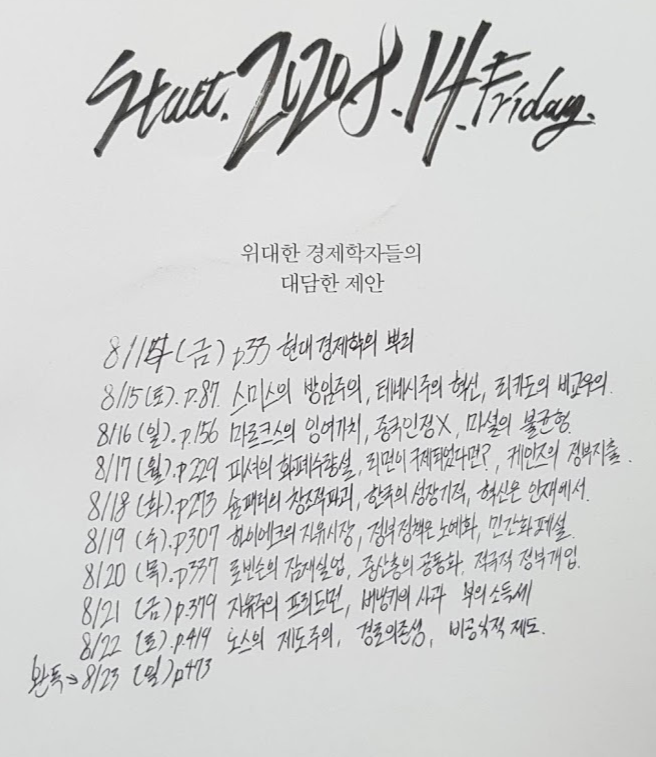 Start. 2020.8.14. Friday.
위대한 경제학자들의
대담한 제안
8/14 (금) p33 현대 경제학의 뿌리
8/15 (토). p.87. 스미스의 방임주의, 테네시주의 혁신, 리카도의 비교우위.
8/16 (일). p.156 마르크스의 잉여가치, 중국인정X, 마셜의 불균형.
8/17 (월). p229 피셔의 화폐수량설, 리먼이 구제되었다면?, 케인즈의 정부지출.
8/18 (화). p273 슘페터의 창조적파괴, 한국의 성장기적, 혁신은 인재에서.
8/19 (수). p307 하이에크의 자유시장, 정부정책은 노예화, 민간화폐설.
8/20 (목). p337 로빈슨의 잠재실업, 중산층의 공동화, 적극적 정부개입.
8/21 (금) p.379 자유주의 프리드먼, 버냉키의 사과 부의소득세
8/22 (토). p.419 노스의 제도주의, 경로의존성, 비공식적 제도.
완독→ 8/23 (일) p473